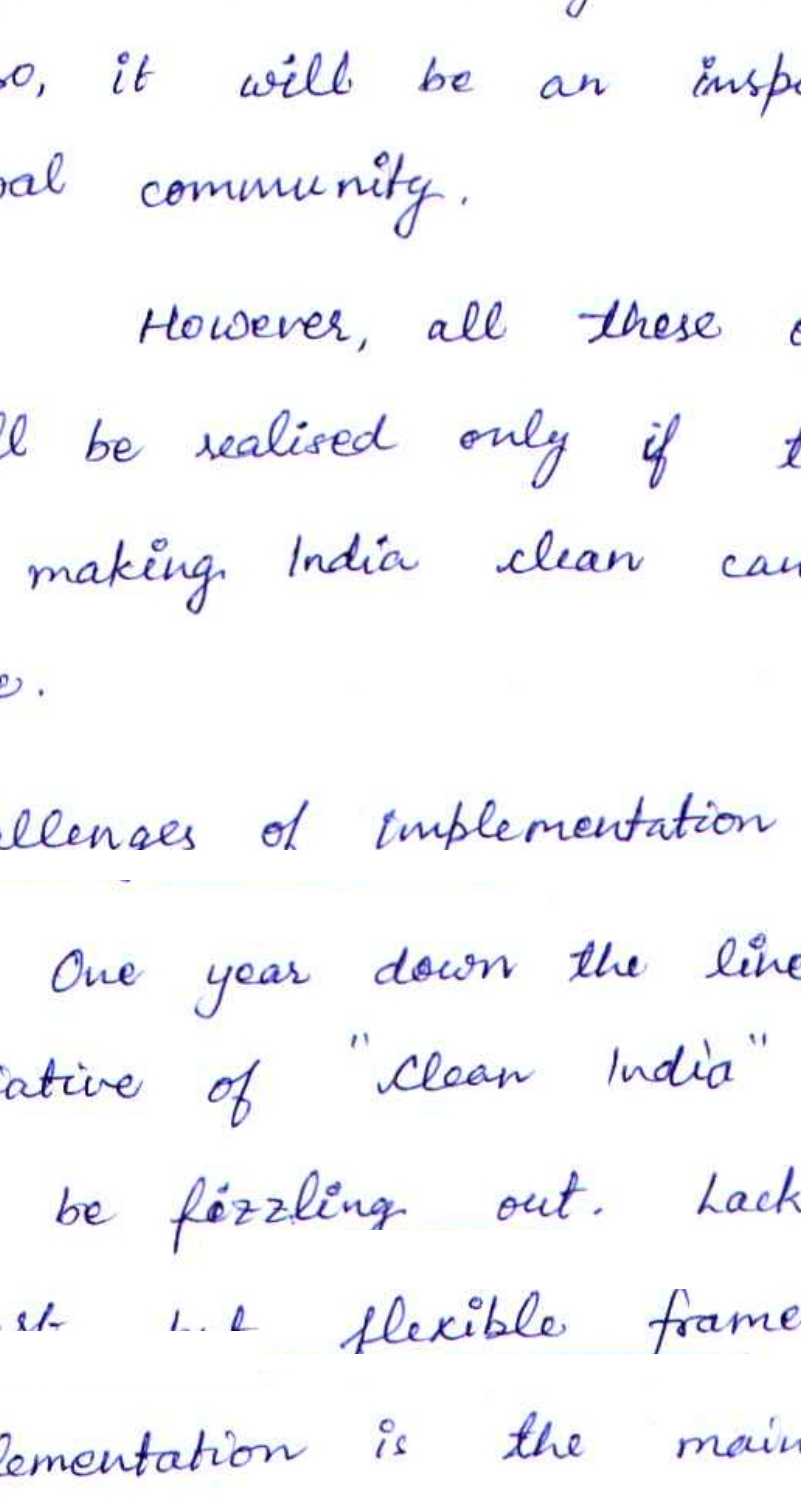 so, it will be an insp
bal community.
However, all these
ll be realised only if t
making India clean can
e.
allenges of implementation
One year down the line
iative of "Clean India"
be fizzling out. Lack
flexible frame
lementation is the main